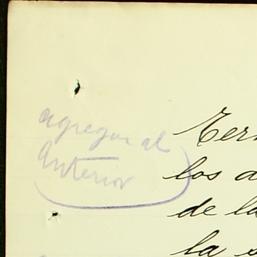 agregar al
anterior
los
de la
la